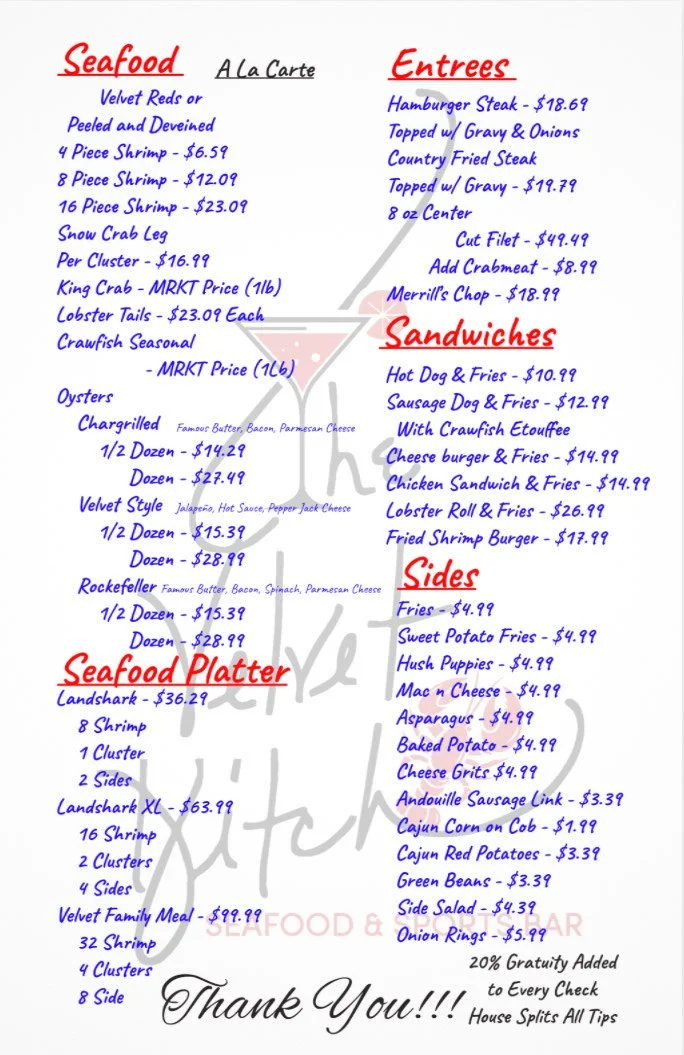 Seafood
A La Carte
Velvet Reds or
Peeled and Deveined
4 Piece Shrimp - $6.59
8 Piece Shrimp - $12.09
16 Piece Shrimp - $23.09
Snow Crab Leg
Per Cluster - $16.99
King Crab - MRKT Price (1lb)
Lobster Tails - $23.09 Each
Crawfish Seasonal
- MRKT Price (1Lb)
Oysters
Chargrilled Famous Butter, Bacon, Parmesan Cheese
1/2 Dozen - $14.29
Dozen - $27.49
Velvet Style Jalapeño, Hot Sauce, Pepper Jack Cheese
1/2 Dozen - $15.39
Dozen - $28.99
Rockefeller Famous Butter, Bacon, Spinach, Parmesan Cheese
1/2 Dozen - $15.39
Dozen - $28.99
Seafood Platter
Landshark - $36.29
8 Shrimp
1 Cluster
2 Sides
Landshark XL - $63.99
16 Shrimp
2 Clusters
4 Sides
Velvet Family Meal - $99.99
32 Shrimp
4 Clusters
8 Side
Entrees
Hamburger Steak - $18.69
Topped w/ Gravy & Onions
Country Fried Steak
Topped w/ Gravy - $19.79
8 oz Center
Cut Filet - $49.49
Add Crabmeat - $8.99
Merrill's Chop - $18.99
Sandwiches
Hot Dog & Fries - $10.99
Sausage Dog & Fries - $12.99
With Crawfish Etouffee
Cheese burger & Fries - $14.99
Chicken Sandwich & Fries - $14.99
Lobster Roll & Fries - $26.99
Fried Shrimp Burger - $17.99
Sides
Fries - $4.99
Sweet Potato Fries - $4.99
Hush Puppies - $4.99
Mac n Cheese - $4.99
Asparagus - $4.99
Baked Potato - $4.99
Cheese Grits $4.99
Andouille Sausage Link - $3.39
Cajun Corn on Cob - $1.99
Cajun Red Potatoes - $3.39
Green Beans - $3.39
Side Salad - $4.39
Onion Rings - $5.99
20% Gratuity Added
to Every Check
House Splits All Tips
Thank You!!!
The
Velvet
Kitch
SEAFOOD & SPORTS BAR